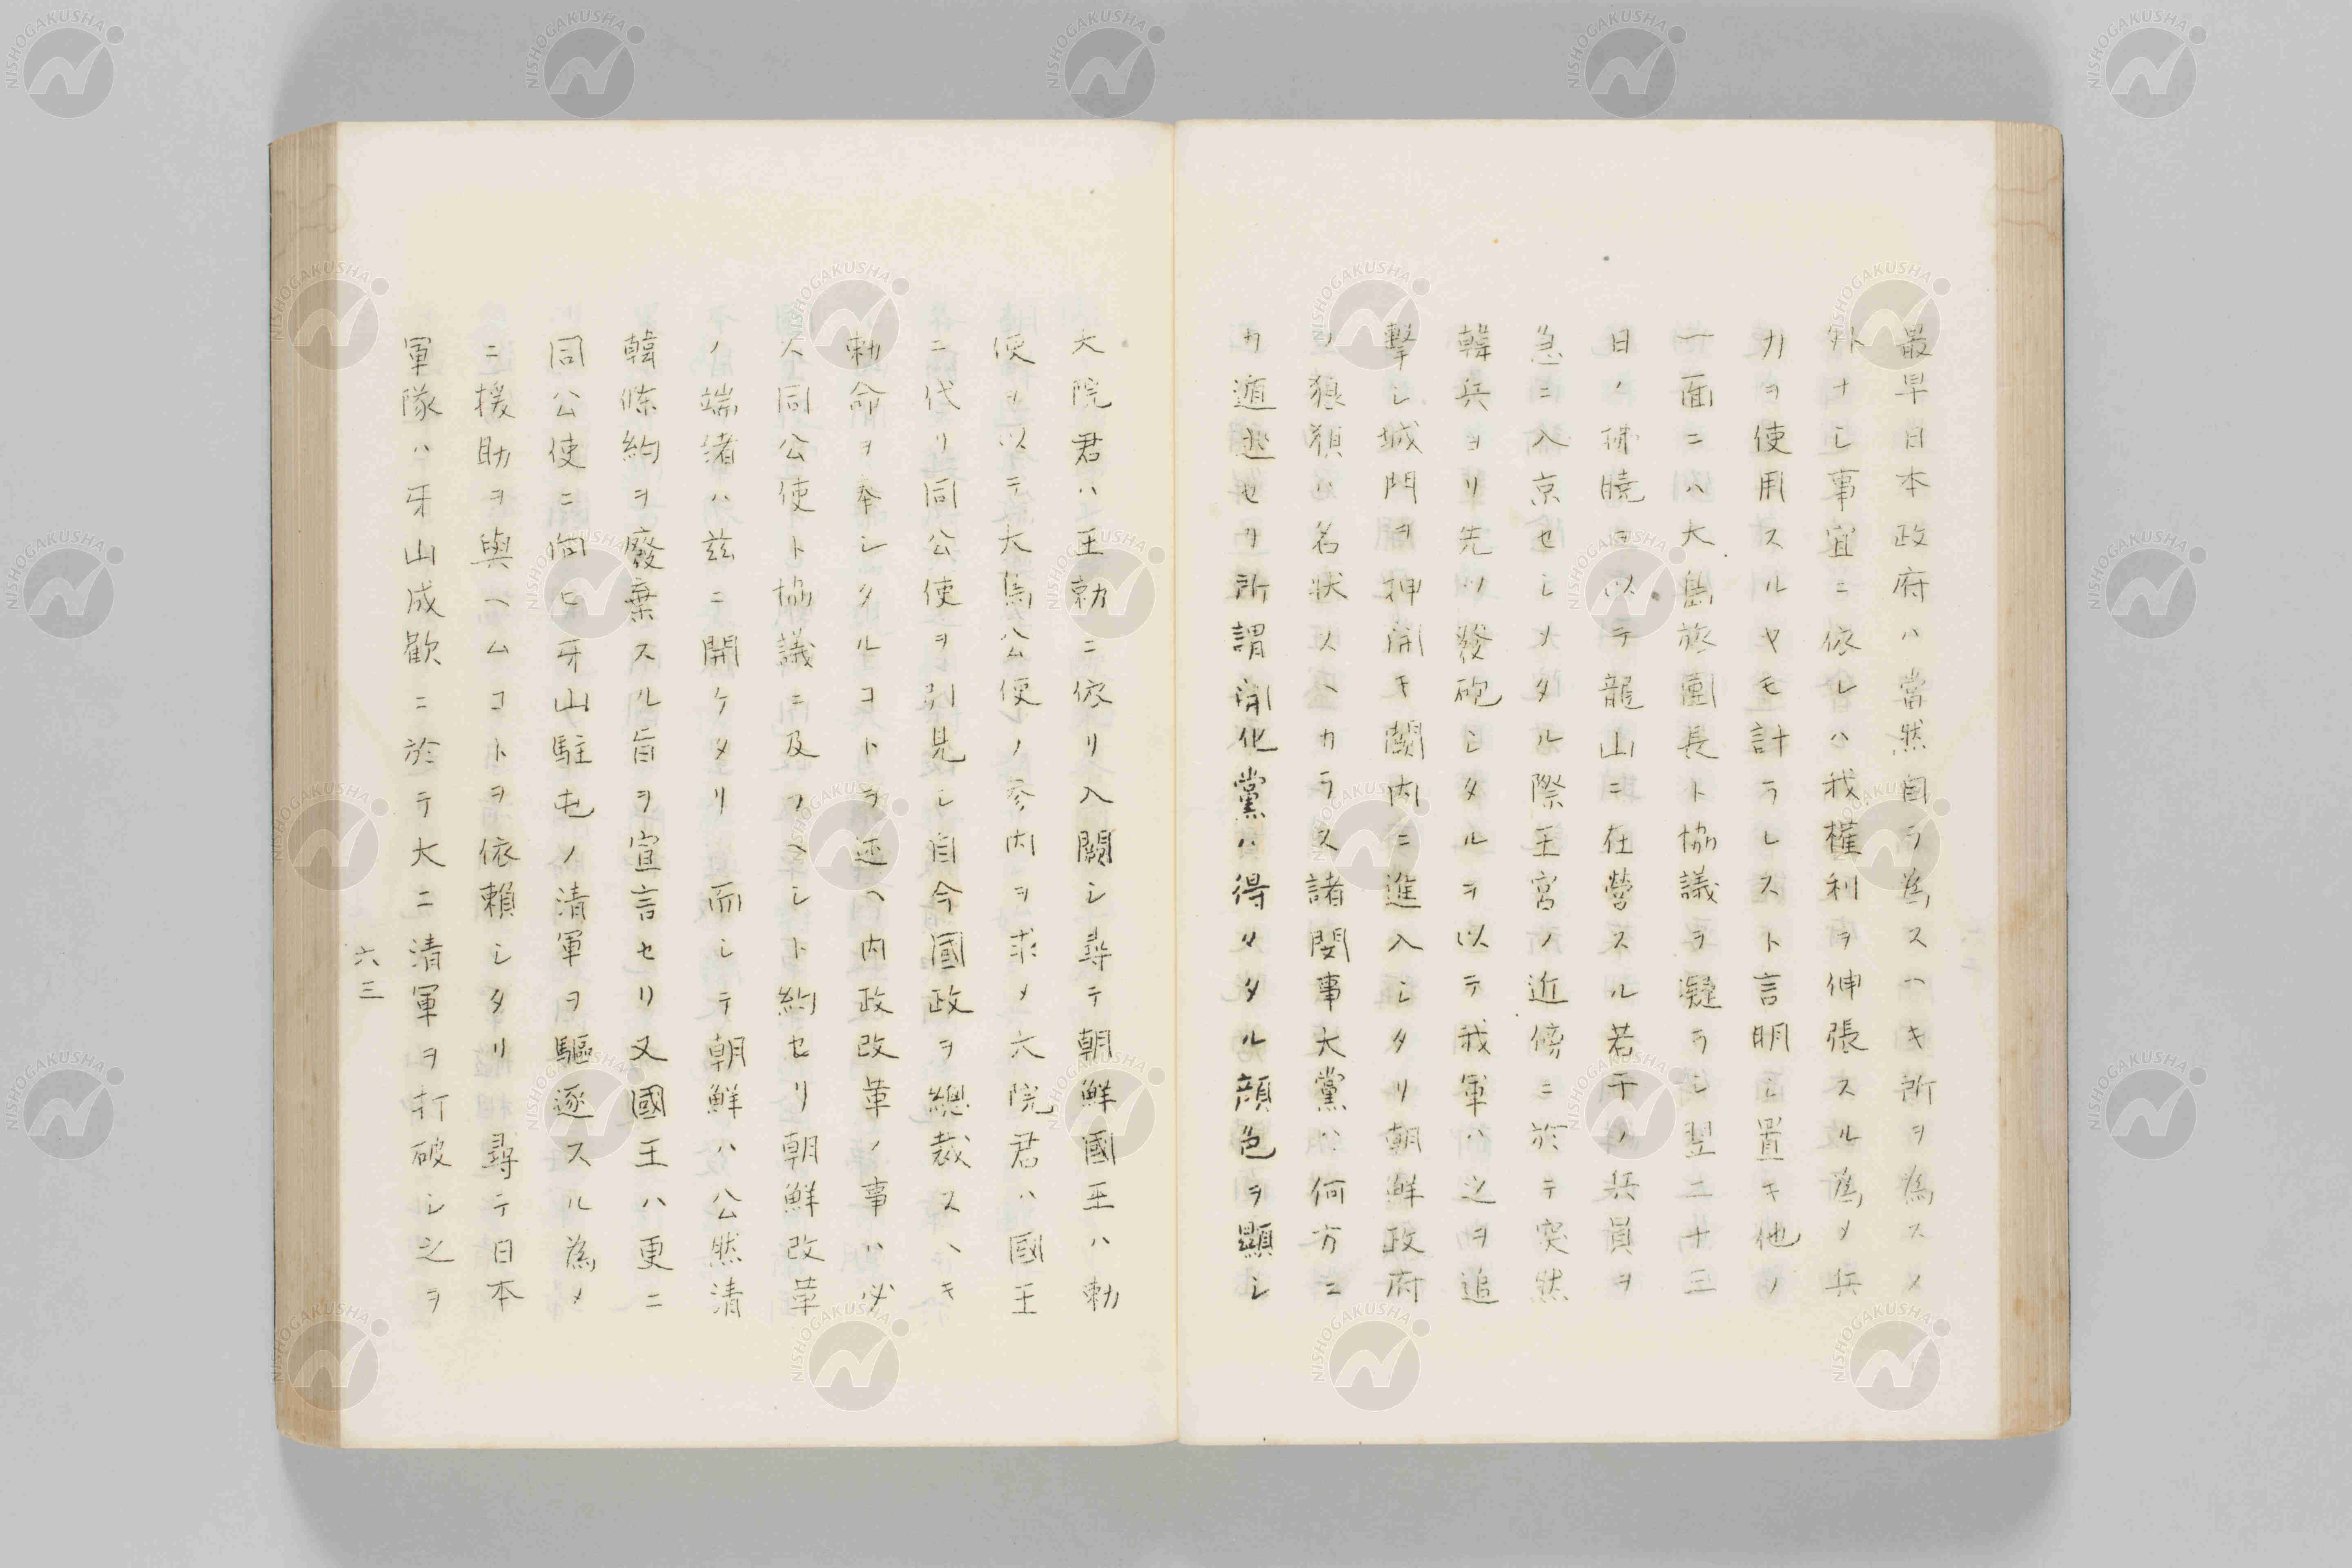 最早日本政府ハ當然自ラ為スヘキ所ヲ為スノ
外ナシ事宜ニ依レハ我權利ヲ伸張スル為メ兵
力ヲ使用スルヤモ計ラレスト言明シ置キ他ノ
一面ニハ大島旅團長ト協議ヲ凝ラシ翌二十三
日ノ拂曉ヲ以テ龍山ニ在營スル若干ノ兵員ヲ
急ニ入京セシメタル際王宮ノ近傍ニ於テ突然
韓兵ヨリ先ツ發砲シタルヲ以テ我軍ハ之ヲ追
擊シ城門ヲ押開キ闕内ニ進入シタリ朝鮮政府
ノ狼狽ハ名状スヘカラス諸閔事大黨ハ何方ニ
カ遁逃セリ所謂開化黨ハ得々タル顔色ヲ顯シ
大院君ハ王勅ニ依リ入闕シ尋テ朝鮮國王ハ勅
使ヲ以テ大鳥公使ノ参内ヲ求メ大院君ハ國王
ニ代リ同公使ヲ引見シ自今國政ヲ總裁スヘキ
勅命ヲ奉シタルコトヲ述ヘ内政改革ノ事ハ必
ス同公使ト協議ニ及フヘシト約セリ朝鮮改革
ノ端緒ハ茲ニ開ケタリ而シテ朝鮮ハ公然清
韓條約ヲ廢棄スル旨ヲ宣言セリ又國王ハ更ニ
同公使ニ向ヒ牙山駐屯ノ清軍ヲ驅逐スル為メ
ニ援助ヲ與ヘムコトヲ依賴シタリ尋テ日本
軍隊ハ牙山成歡ニ於テ大ニ清軍ヲ打破シ之ヲ
六三
NISHOGAKUSHA